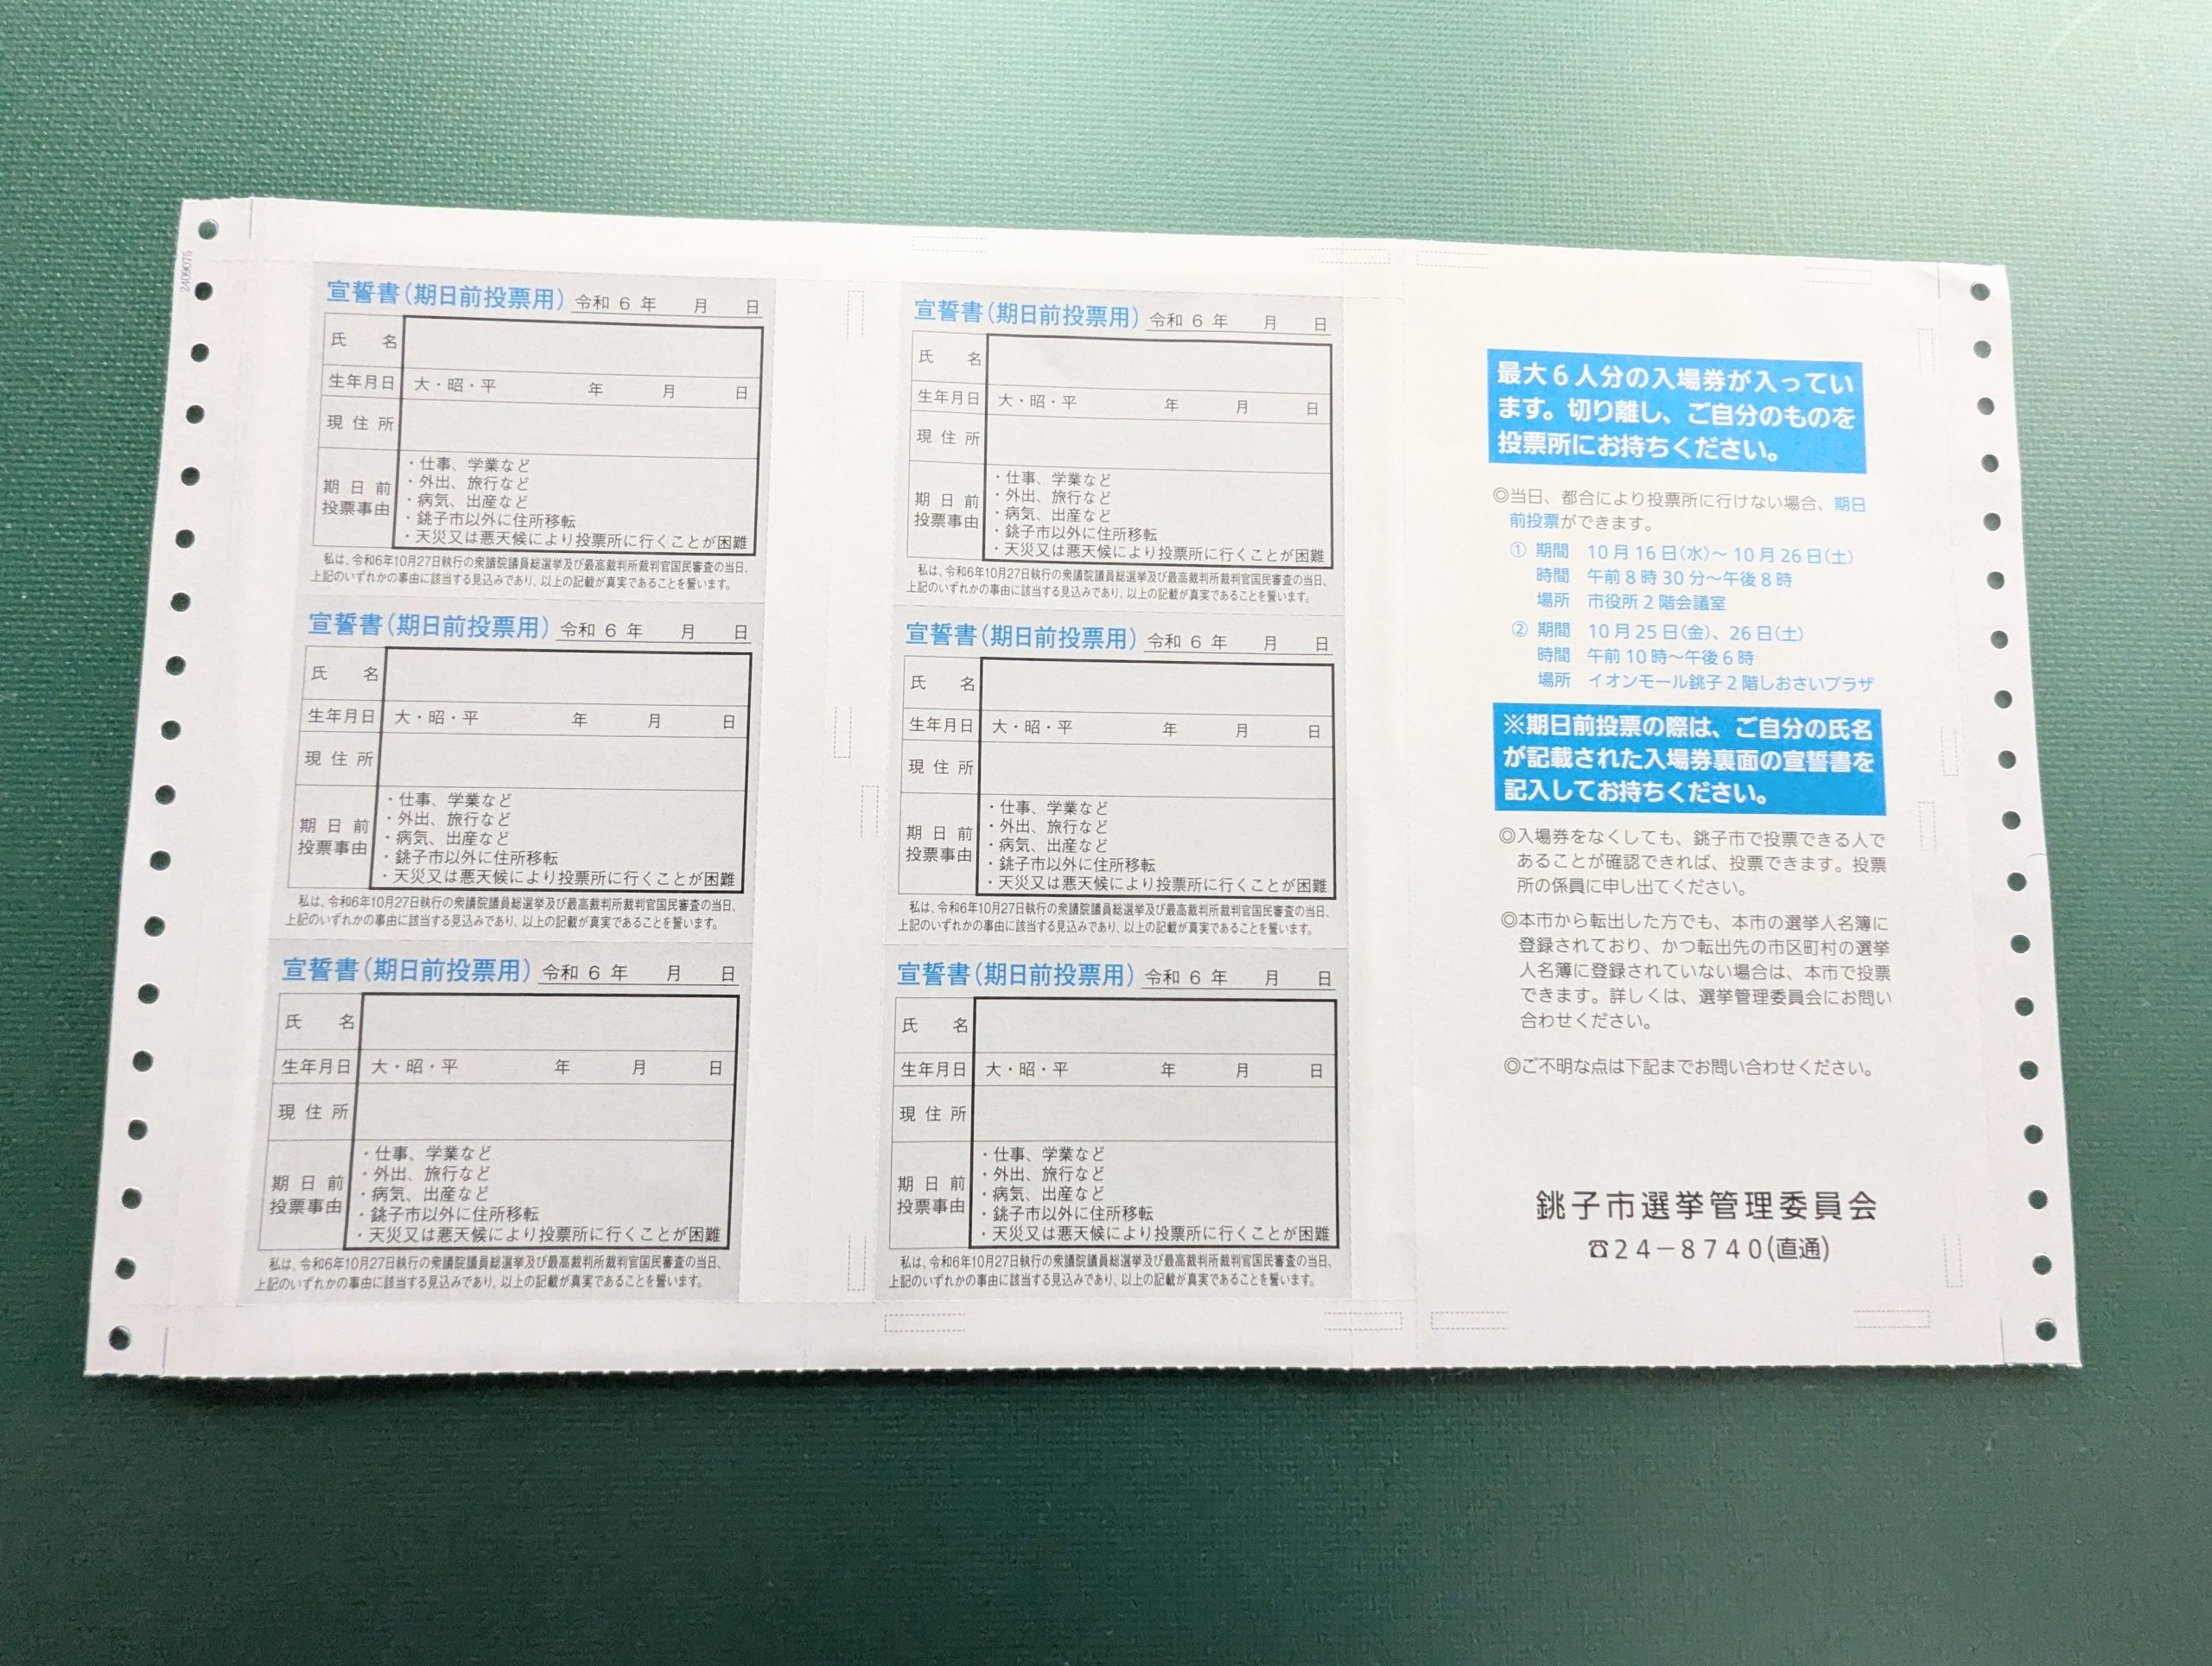 2409075
宣誓書(期日前投票用) 令和 6 年 月 日
氏 名
生年月日 大・昭・平 年 月 日
現 住 所
期 日 前
投票事由
・仕事、学業など
・外出、旅行など
・病気、出産など
・銚子市以外に住所移転
・天災又は悪天候により投票所に行くことが困難
私は、令和6年10月27日執行の衆議院議員総選挙及び最高裁判所裁判官国民審査の当日、
上記のいずれかの事由に該当する見込みであり、以上の記載が真実であることを誓います。
宣誓書(期日前投票用) 令和 6 年 月 日
氏 名
生年月日 大・昭・平 年 月 日
現 住 所
期 日 前
投票事由
・仕事、学業など
・外出、旅行など
・病気、出産など
・銚子市以外に住所移転
・天災又は悪天候により投票所に行くことが困難
私は、令和6年10月27日執行の衆議院議員総選挙及び最高裁判所裁判官国民審査の当日、
上記のいずれかの事由に該当する見込みであり、以上の記載が真実であることを誓います。
宣誓書(期日前投票用) 令和 6 年 月 日
氏 名
生年月日 大・昭・平 年 月 日
現 住 所
期 日 前
投票事由
・仕事、学業など
・外出、旅行など
・病気、出産など
・銚子市以外に住所移転
・天災又は悪天候により投票所に行くことが困難
私は、令和6年10月27日執行の衆議院議員総選挙及び最高裁判所裁判官国民審査の当日、
上記のいずれかの事由に該当する見込みであり、以上の記載が真実であることを誓います。
宣誓書(期日前投票用) 令和 6 年 月 日
氏 名
生年月日 大・昭・平 年 月 日
現 住 所
期 日 前
投票事由
・仕事、学業など
・外出、旅行など
・病気、出産など
・銚子市以外に住所移転
・天災又は悪天候により投票所に行くことが困難
私は、令和6年10月27日執行の衆議院議員総選挙及び最高裁判所裁判官国民審査の当日、
上記のいずれかの事由に該当する見込みであり、以上の記載が真実であることを誓います。
宣誓書(期日前投票用) 令和 6 年 月 日
氏 名
生年月日 大・昭・平 年 月 日
現 住 所
期 日 前
投票事由
・仕事、学業など
・外出、旅行など
・病気、出産など
・銚子市以外に住所移転
・天災又は悪天候により投票所に行くことが困難
私は、令和6年10月27日執行の衆議院議員総選挙及び最高裁判所裁判官国民審査の当日、
上記のいずれかの事由に該当する見込みであり、以上の記載が真実であることを誓います。
宣誓書(期日前投票用) 令和 6 年 月 日
氏 名
生年月日 大・昭・平 年 月 日
現 住 所
期 日 前
投票事由
・仕事、学業など
・外出、旅行など
・病気、出産など
・銚子市以外に住所移転
・天災又は悪天候により投票所に行くことが困難
私は、令和6年10月27日執行の衆議院議員総選挙及び最高裁判所裁判官国民審査の当日、
上記のいずれかの事由に該当する見込みであり、以上の記載が真実であることを誓います。
最大6人分の入場券が入ってい
ます。切り離し、ご自分のものを
投票所にお持ちください。
◎当日、都合により投票所に行けない場合、期日
前投票ができます。
① 期間 10月16日(水)～10月26日(土)
時間 午前8時30分～午後8時
場所 市役所2階会議室
② 期間 10月25日(金)、26日(土)
時間 午前10時～午後6時
場所 イオンモール銚子2階しおさいプラザ
※期日前投票の際は、ご自分の氏名
が記載された入場券裏面の宣誓書を
記入してお持ちください。
◎入場券をなくしても、銚子市で投票できる人で
あることが確認できれば、投票できます。投票
所の係員に申し出てください。
◎本市から転出した方でも、本市の選挙人名簿に
登録されており、かつ転出先の市区町村の選挙
人名簿に登録されていない場合は、本市で投票
できます。詳しくは、選挙管理委員会にお問い
合わせください。
◎ご不明な点は下記までお問い合わせください。
銚子市選挙管理委員会
☎24－8740(直通)